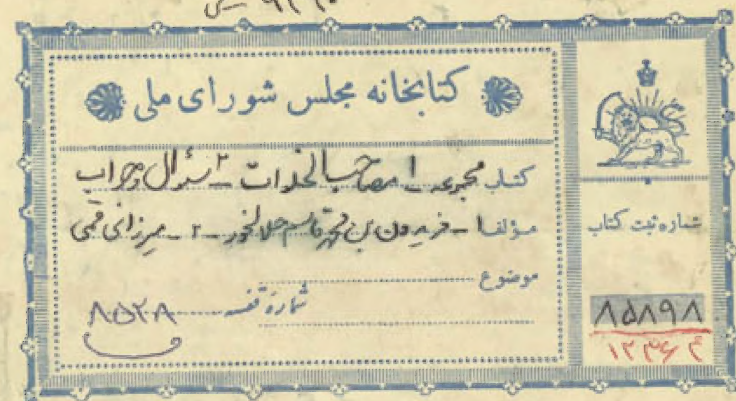 کتابخانه مجلس شورای ملی
کتاب مجموعه ۱ ـ ۲ ـ سئوال و جواب
مؤلف ۱ ـ فریدون بن محمد قاسم ۲ ـ میرزای قمی
موضوع
شماره قفسه ۸۵۲۸
شماره ثبت کتاب
۸۵۸۹۸